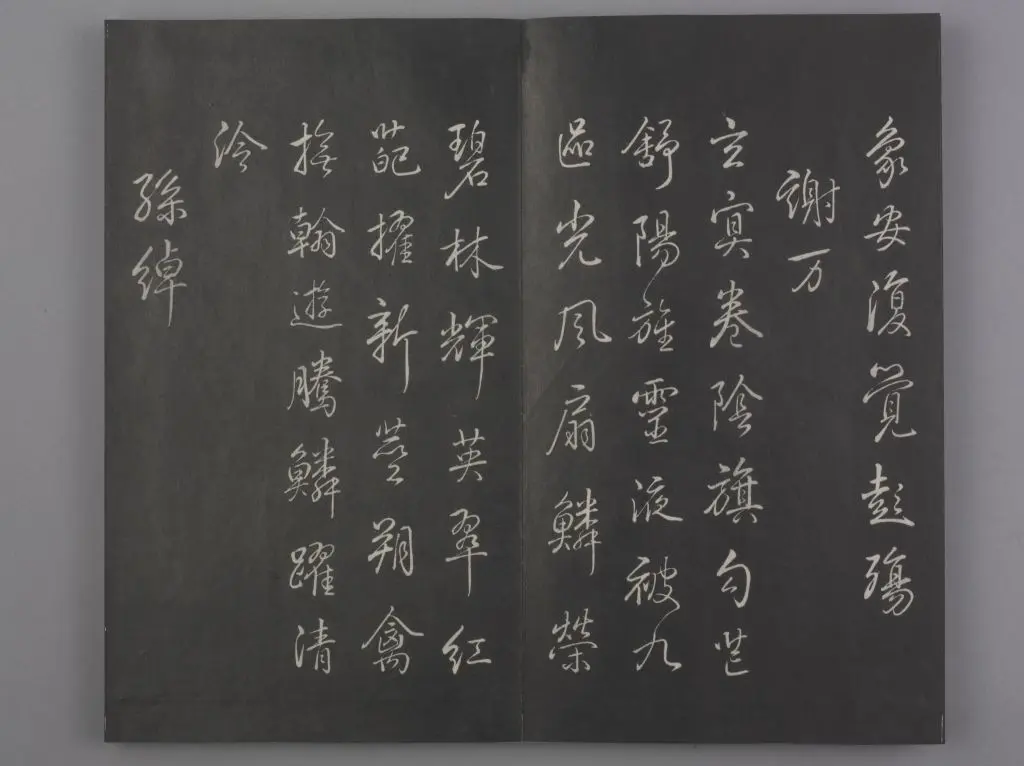 象安復覺彭殤
謝万
玄冥卷陰旗句芒
舒陽旌靈液被九
區光風扇鱗榮
碧林輝英翠紅
葩擢新莖翔禽
撫翰遊騰鱗躍清
泠
孫綽